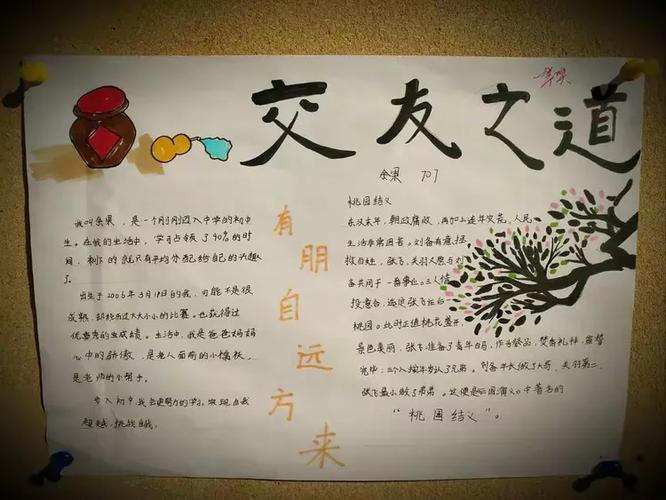 交友之道
余果 707
我叫余果，是一个刚刚迈入中学的初中
生。在我的生活中，学习占领了90%的时
间，剩下的就只有平均分配给自己的兴趣
了。
出生于2006年3月19日的我，可能不是很
成熟，却经历过大大小小的比赛，也获得过
优秀的成绩。生活中，我是爸爸妈妈
心中的骄傲，是老人面前的小
是老师的小帮手。
步入初中，我会更努力的学习，发现自我
超越，挑战自我。
有朋自远方来
桃园结义
东汉末年，朝政腐败，再加上连年灾荒，人民
生活非常困苦。刘备有意拯
救百姓，张飞、关羽又愿与刘
备共同干一番事业。三人情
投意合，选定张飞庄后
桃园。此时正值桃花盛开，
景色美丽，张飞准备了青牛白马，作为祭品，焚香礼拜，宣誓
完毕，三个人按年岁认了兄弟。刘备年长做了大哥，关羽第二，
张飞最小做了弟弟。这便是《三国演义》中著名的
“桃园结义”。